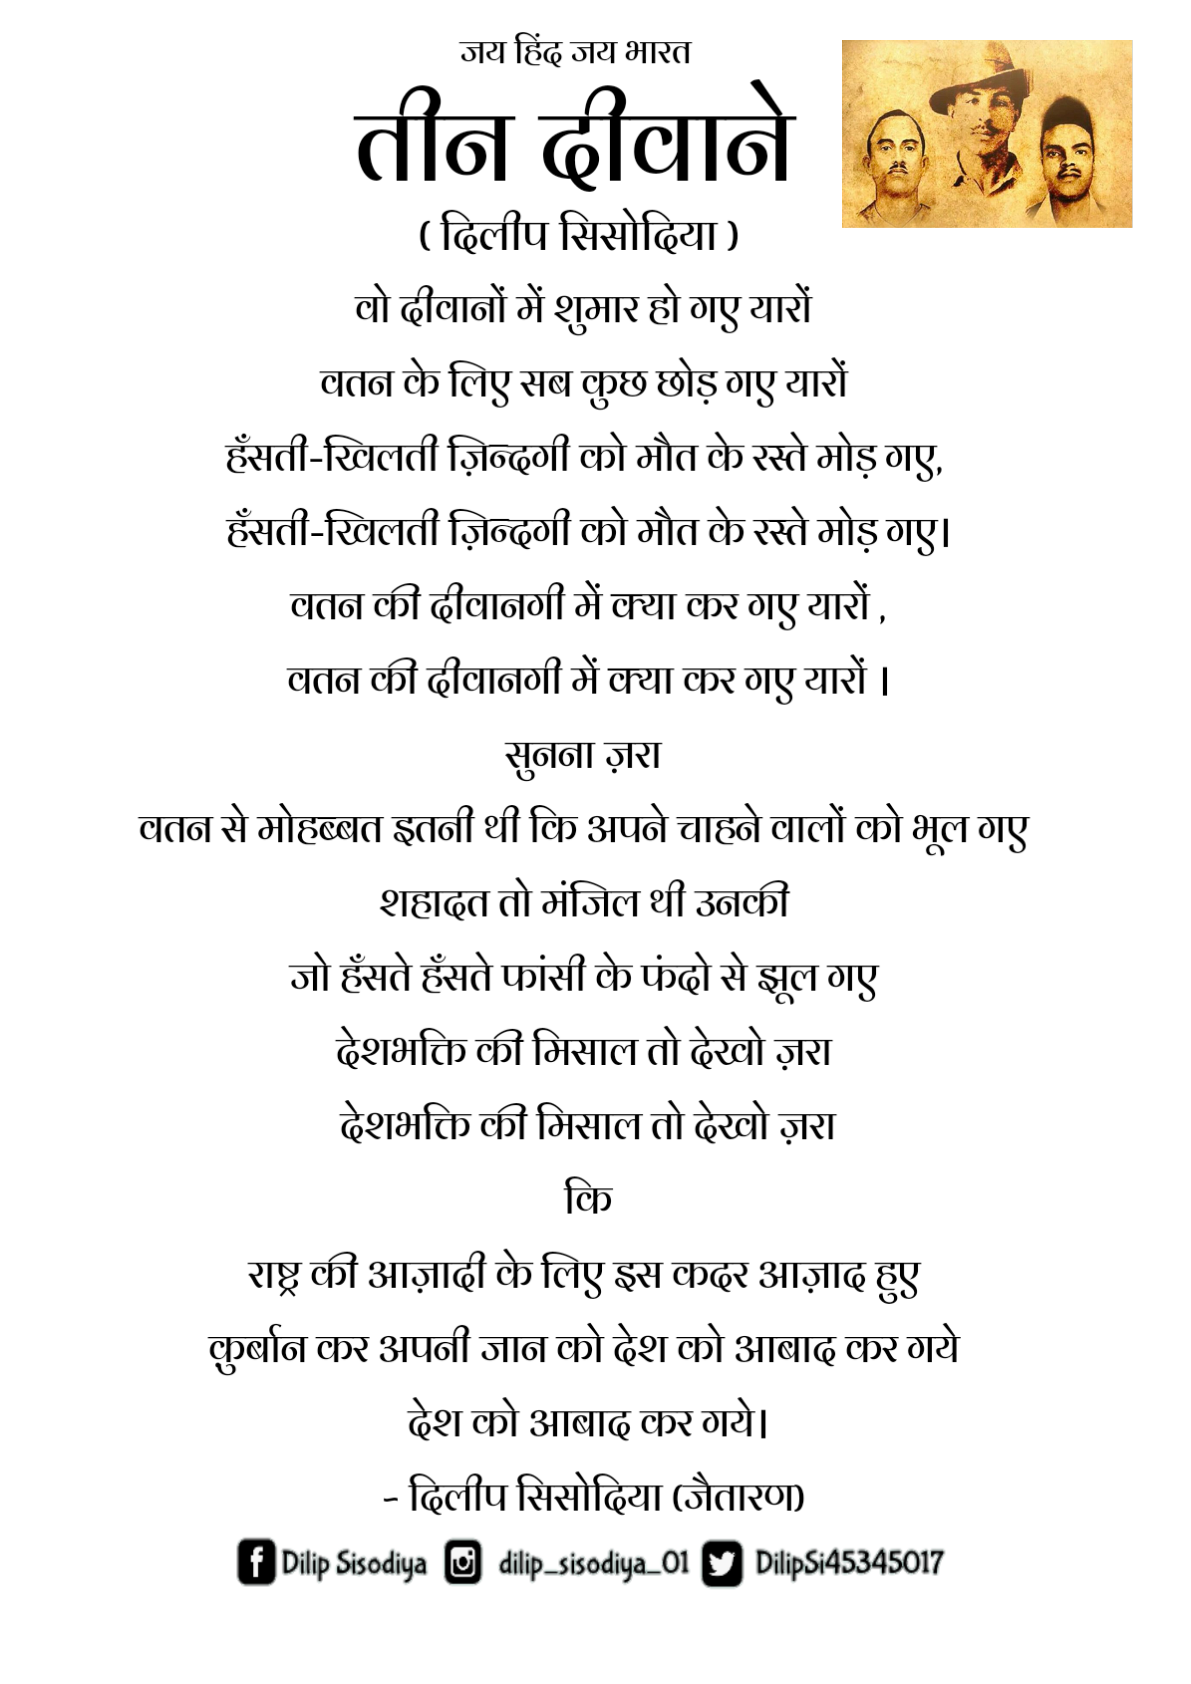 जय हिंद जय भारत
तीन दीवाने
( दिलीप सिसोदिया )
वो दीवानों में शुमार हो गए यारों
वतन के लिए सब कुछ छोड़ गए यारों
हँसती-खिलती ज़िन्दगी को मौत के रस्ते मोड़ गए,
हँसती-खिलती ज़िन्दगी को मौत के रस्ते मोड़ गए।
वतन की दीवानगी में क्या कर गए यारों ,
वतन की दीवानगी में क्या कर गए यारों ।
सुनना ज़रा
वतन से मोहब्बत इतनी थी कि अपने चाहने वालों को भूल गए
शहादत तो मंजिल थी उनकी
जो हँसते हँसते फांसी के फंदो से झूल गए
देशभक्ति की मिसाल तो देखो ज़रा
देशभक्ति की मिसाल तो देखो ज़रा
कि
राष्ट्र की आज़ादी के लिए इस कदर आज़ाद हुए
क़ुर्बान कर अपनी जान को देश को आबाद कर गये
देश को आबाद कर गये।
- दिलीप सिसोदिया (जैतारण)
Dilip Sisodiya dilip_sisodiya_01 DilipSi45345017